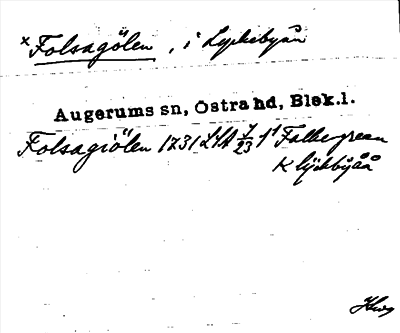 x Folsagölen, i Lyckebyån
Augerums sn, Östra hd, Blek.l.
Folsagiölen 1731 LSA 7/23 1¹ Falbe green
K lyckbyåå